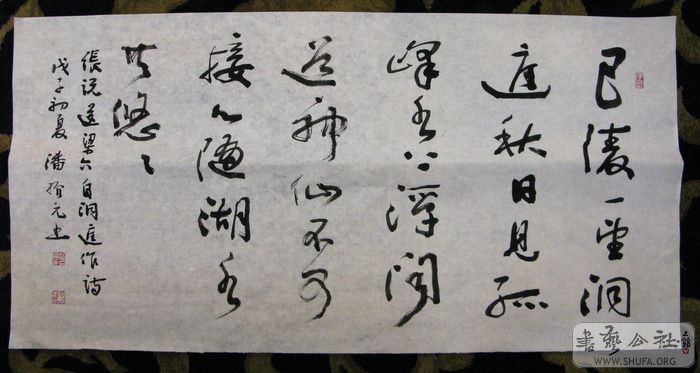 巴陵一望洞
庭秋日见孤
峰水上浮闻
道神仙不可
接心随湖水
共悠々
張说送梁六自洞庭作詩
戊子初夏 潘 元书
書藝公社
WWW.SHUFA.ORG